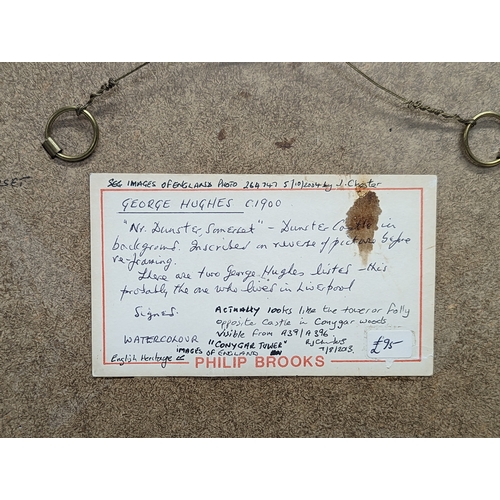 SEE IMAGES OF ENGLAND PHOTO 264747 5/10/2004 by J. Chester
GEORGE HUGHES C1900
"Nr. Dunster, Somerset" - Dunster Castle in
background. Inscribed on reverse of picture before
re-framing.
There are two George Hughes listed - this
probably the one who lived in Liverpool
Signed. Actually looks like the tower or folly
opposite castle in Conygar woods
visible from A39/A396.
WATERCOLOUR "CONYGAR TOWER"
7/8/2013.
English Heritage IMAGES OF ENGLAND
£95
PHILIP BROOKS